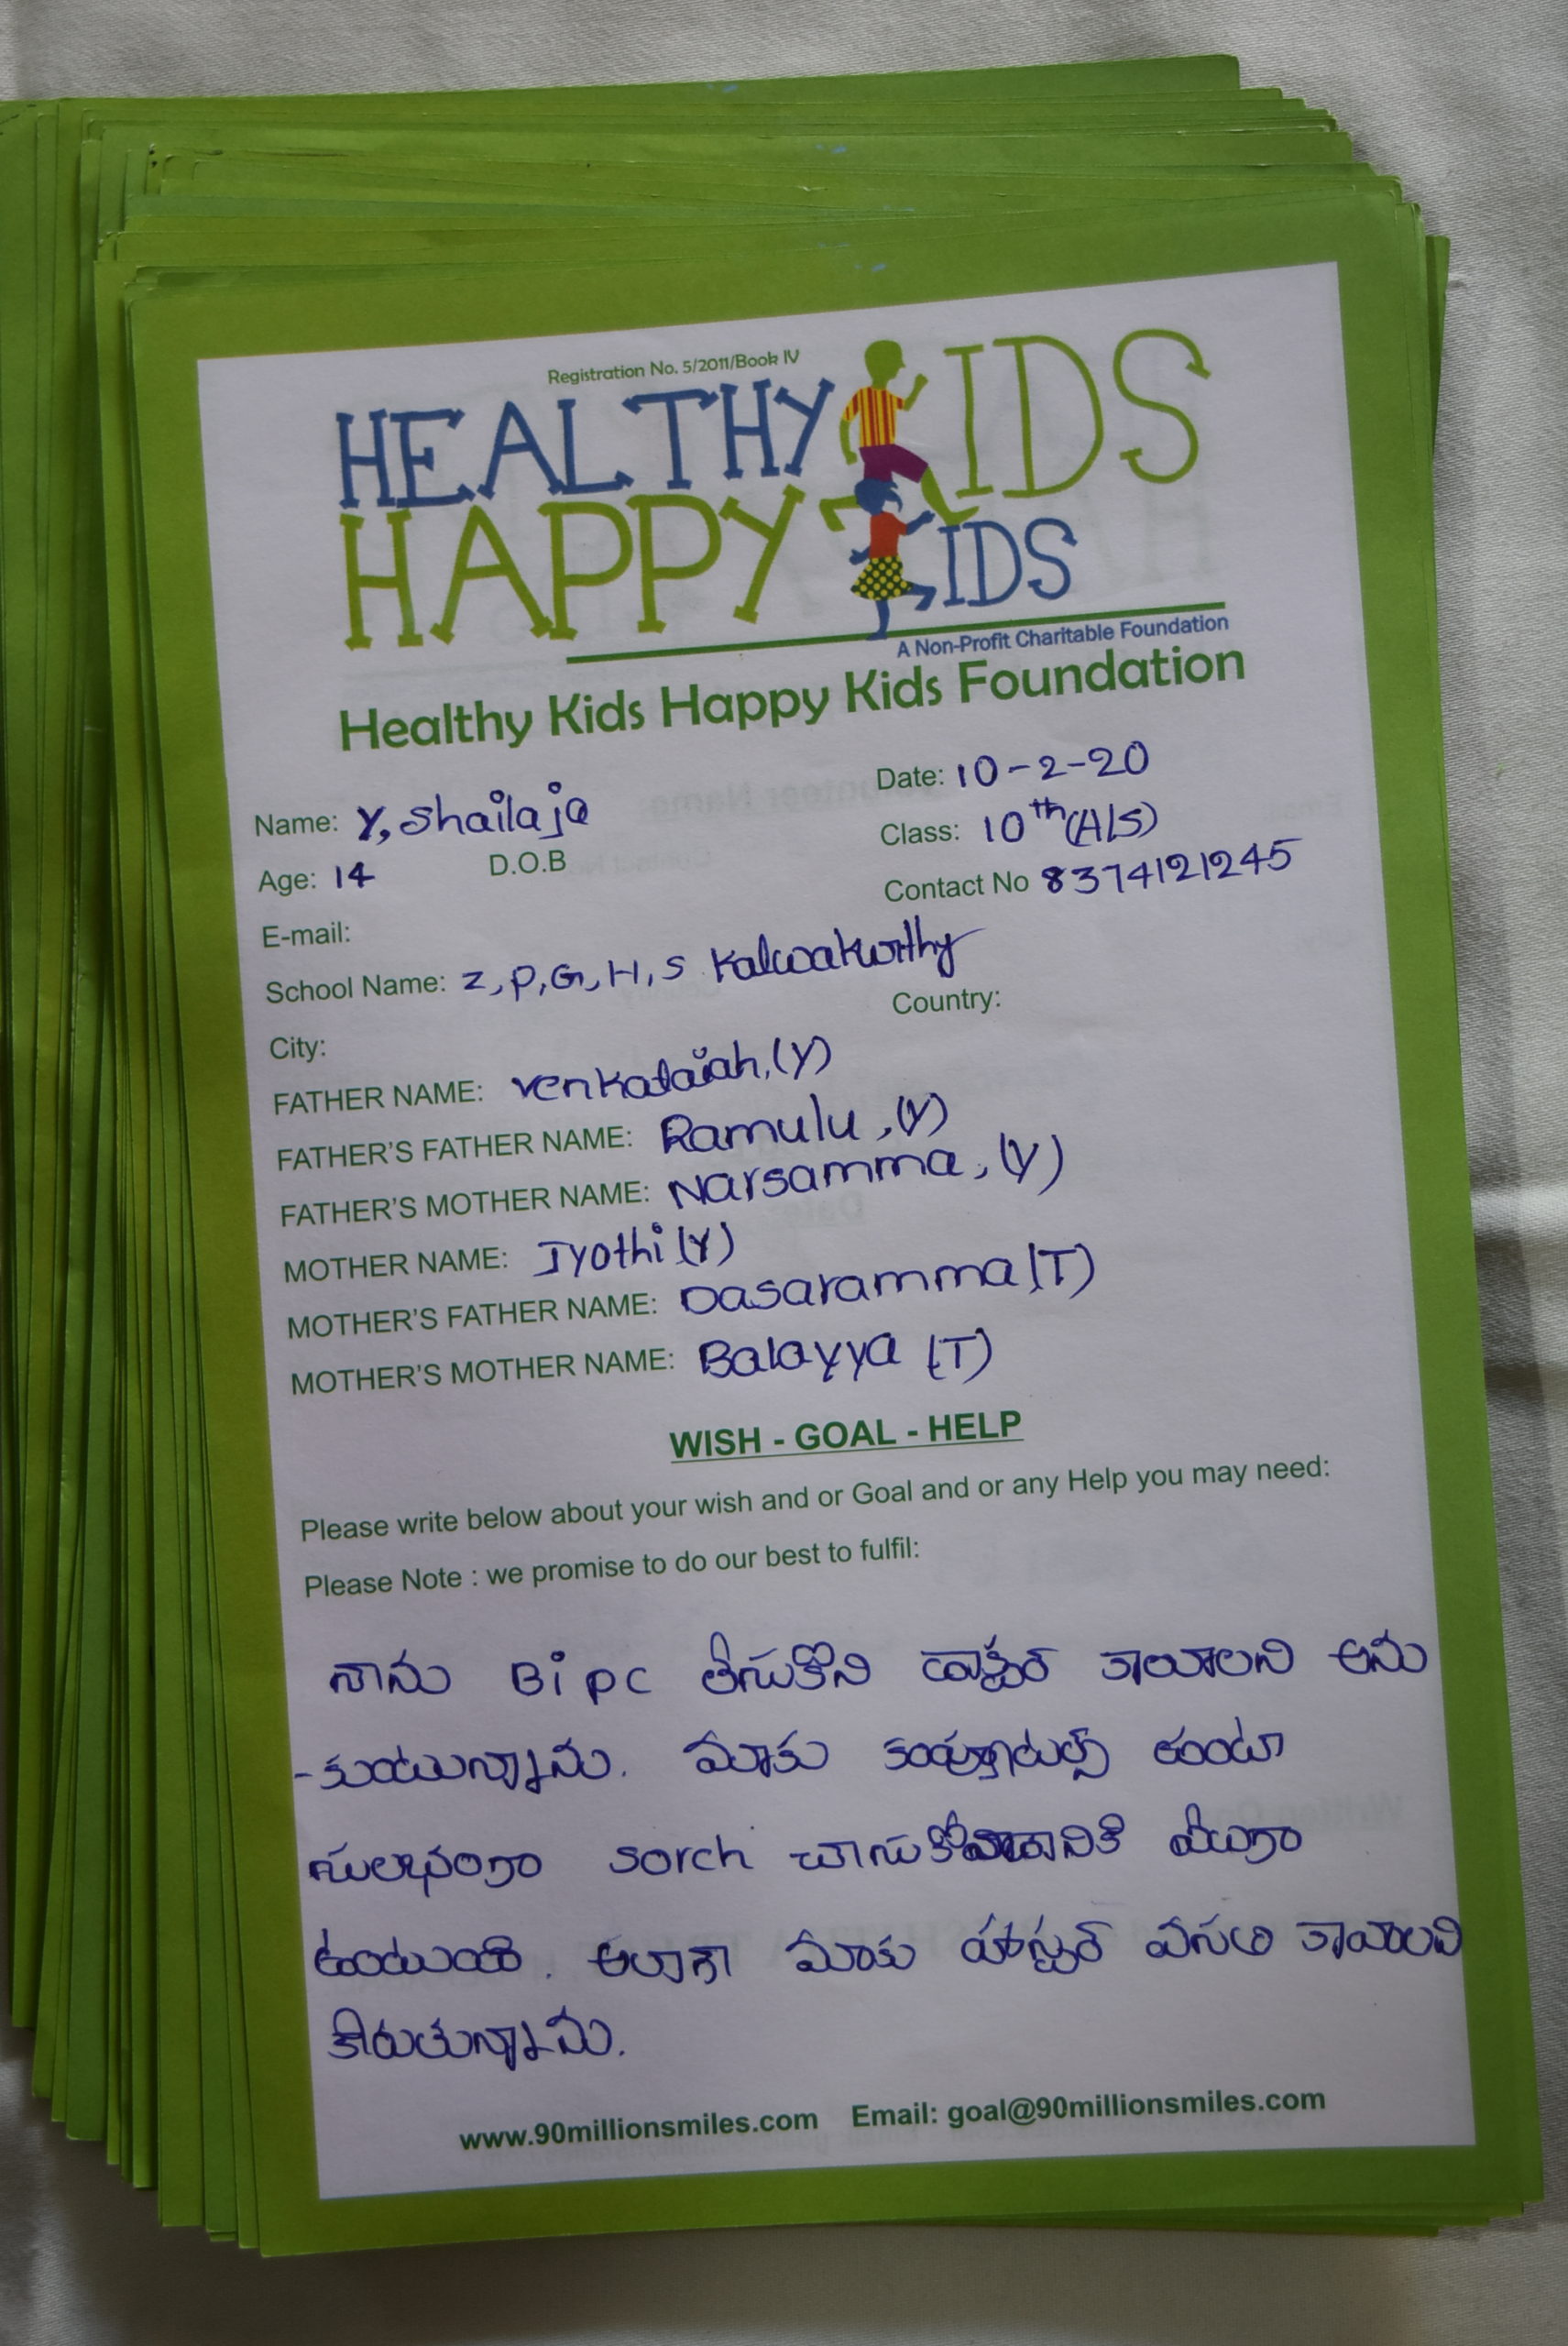 Registration No. 5/2011/Book IV
HEALTHY KIDS
HAPPY KIDS
A Non-Profit Charitable Foundation
Healthy Kids Happy Kids Foundation
Name: Y, Shailaja Date: 10-2-20
Age: 14 D.O.B Class: 10th (A/S)
E-mail: Contact No 8374121245
School Name: Z, P, G, H, S Kalwakurthy
City: Country:
FATHER NAME: Venkataiah, (Y)
FATHER'S FATHER NAME: Ramulu, (Y)
FATHER'S MOTHER NAME: Narsamma, (Y)
MOTHER NAME: Jyothi (Y)
MOTHER'S FATHER NAME: Dasaramma (T)
MOTHER'S MOTHER NAME: Balayya (T)
WISH - GOAL - HELP
Please write below about your wish and or Goal and or any Help you may need:
Please Note : we promise to do our best to fulfil:
నాను Bi pc తీసుకొని డాక్టర్ కావాలని అను
-కుంటున్నాను. మాకు కంప్యూటర్స్ ఉంటా
సులభంగా sorch చాసుకోవడానికి వీలుగా
ఉంటుంది. అలాగా మాకు హాస్టర్ వసతి కావాలని
కోరుతున్నాను.
www.90millionsmiles.com Email: goal@90millionsmiles.com